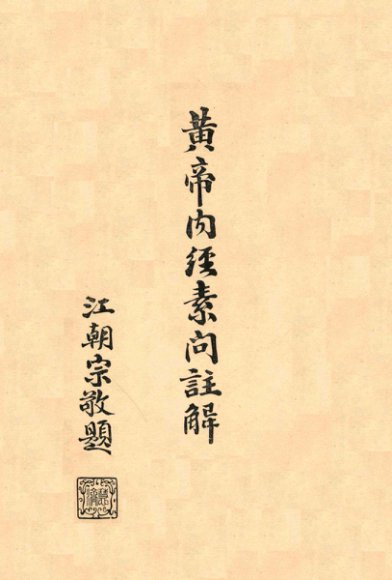 黃帝内經素問註解
江朝宗敬題